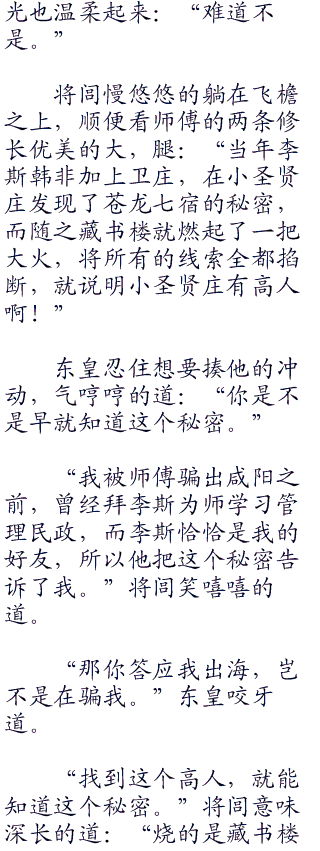 光也温柔起来：“难道不
是。”
将闾慢悠悠的躺在飞檐
之上，顺便看师傅的两条修
长优美的大，腿：“当年李
斯韩非加上卫庄，在小圣贤
庄发现了苍龙七宿的秘密，
而随之藏书楼就燃起了一把
大火，将所有的线索全都掐
断，就说明小圣贤庄有高人
啊！”
东皇忍住想要揍他的冲
动，气哼哼的道：“你是不
是早就知道这个秘密。”
“我被师傅骗出咸阳之
前，曾经拜李斯为师学习管
理民政，而李斯恰恰是我的
好友，所以他把这个秘密告
诉了我。”将闾笑嘻嘻的
道。
“那你答应我出海，岂
不是在骗我。”东皇咬牙
道。
“找到这个高人，就能
知道这个秘密。”将闾意味
深长的道：“烧的是藏书楼